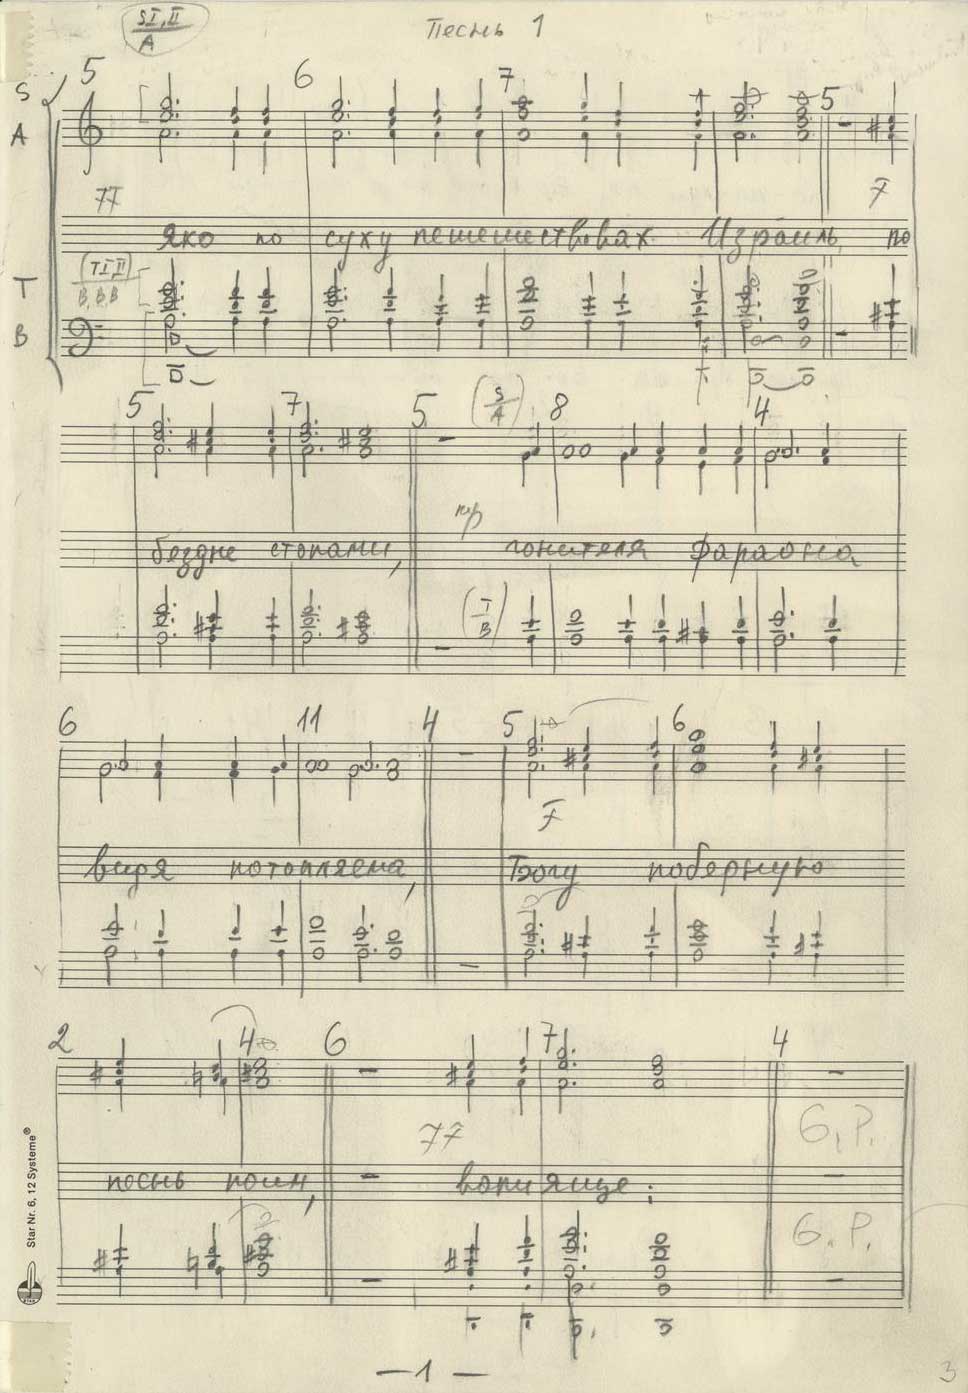 SI,II
A
Песнь 1
5 6 7 5
S
A
Яко по суху пешешествовах Израиль, по
(TI,II)
B,B,B
T
B
5 7 5 (S/A) 8 4
mp
бездне стопами, гонителя фараона
(T/B)
6 11 4 5 6
F
видя потопляема, Богу победную
2 4 6 7 4
G.P.
песнь поим, вопияще:
G.P.
Star Nr. 6, 12 Systeme®
STAR
— 1 —
3